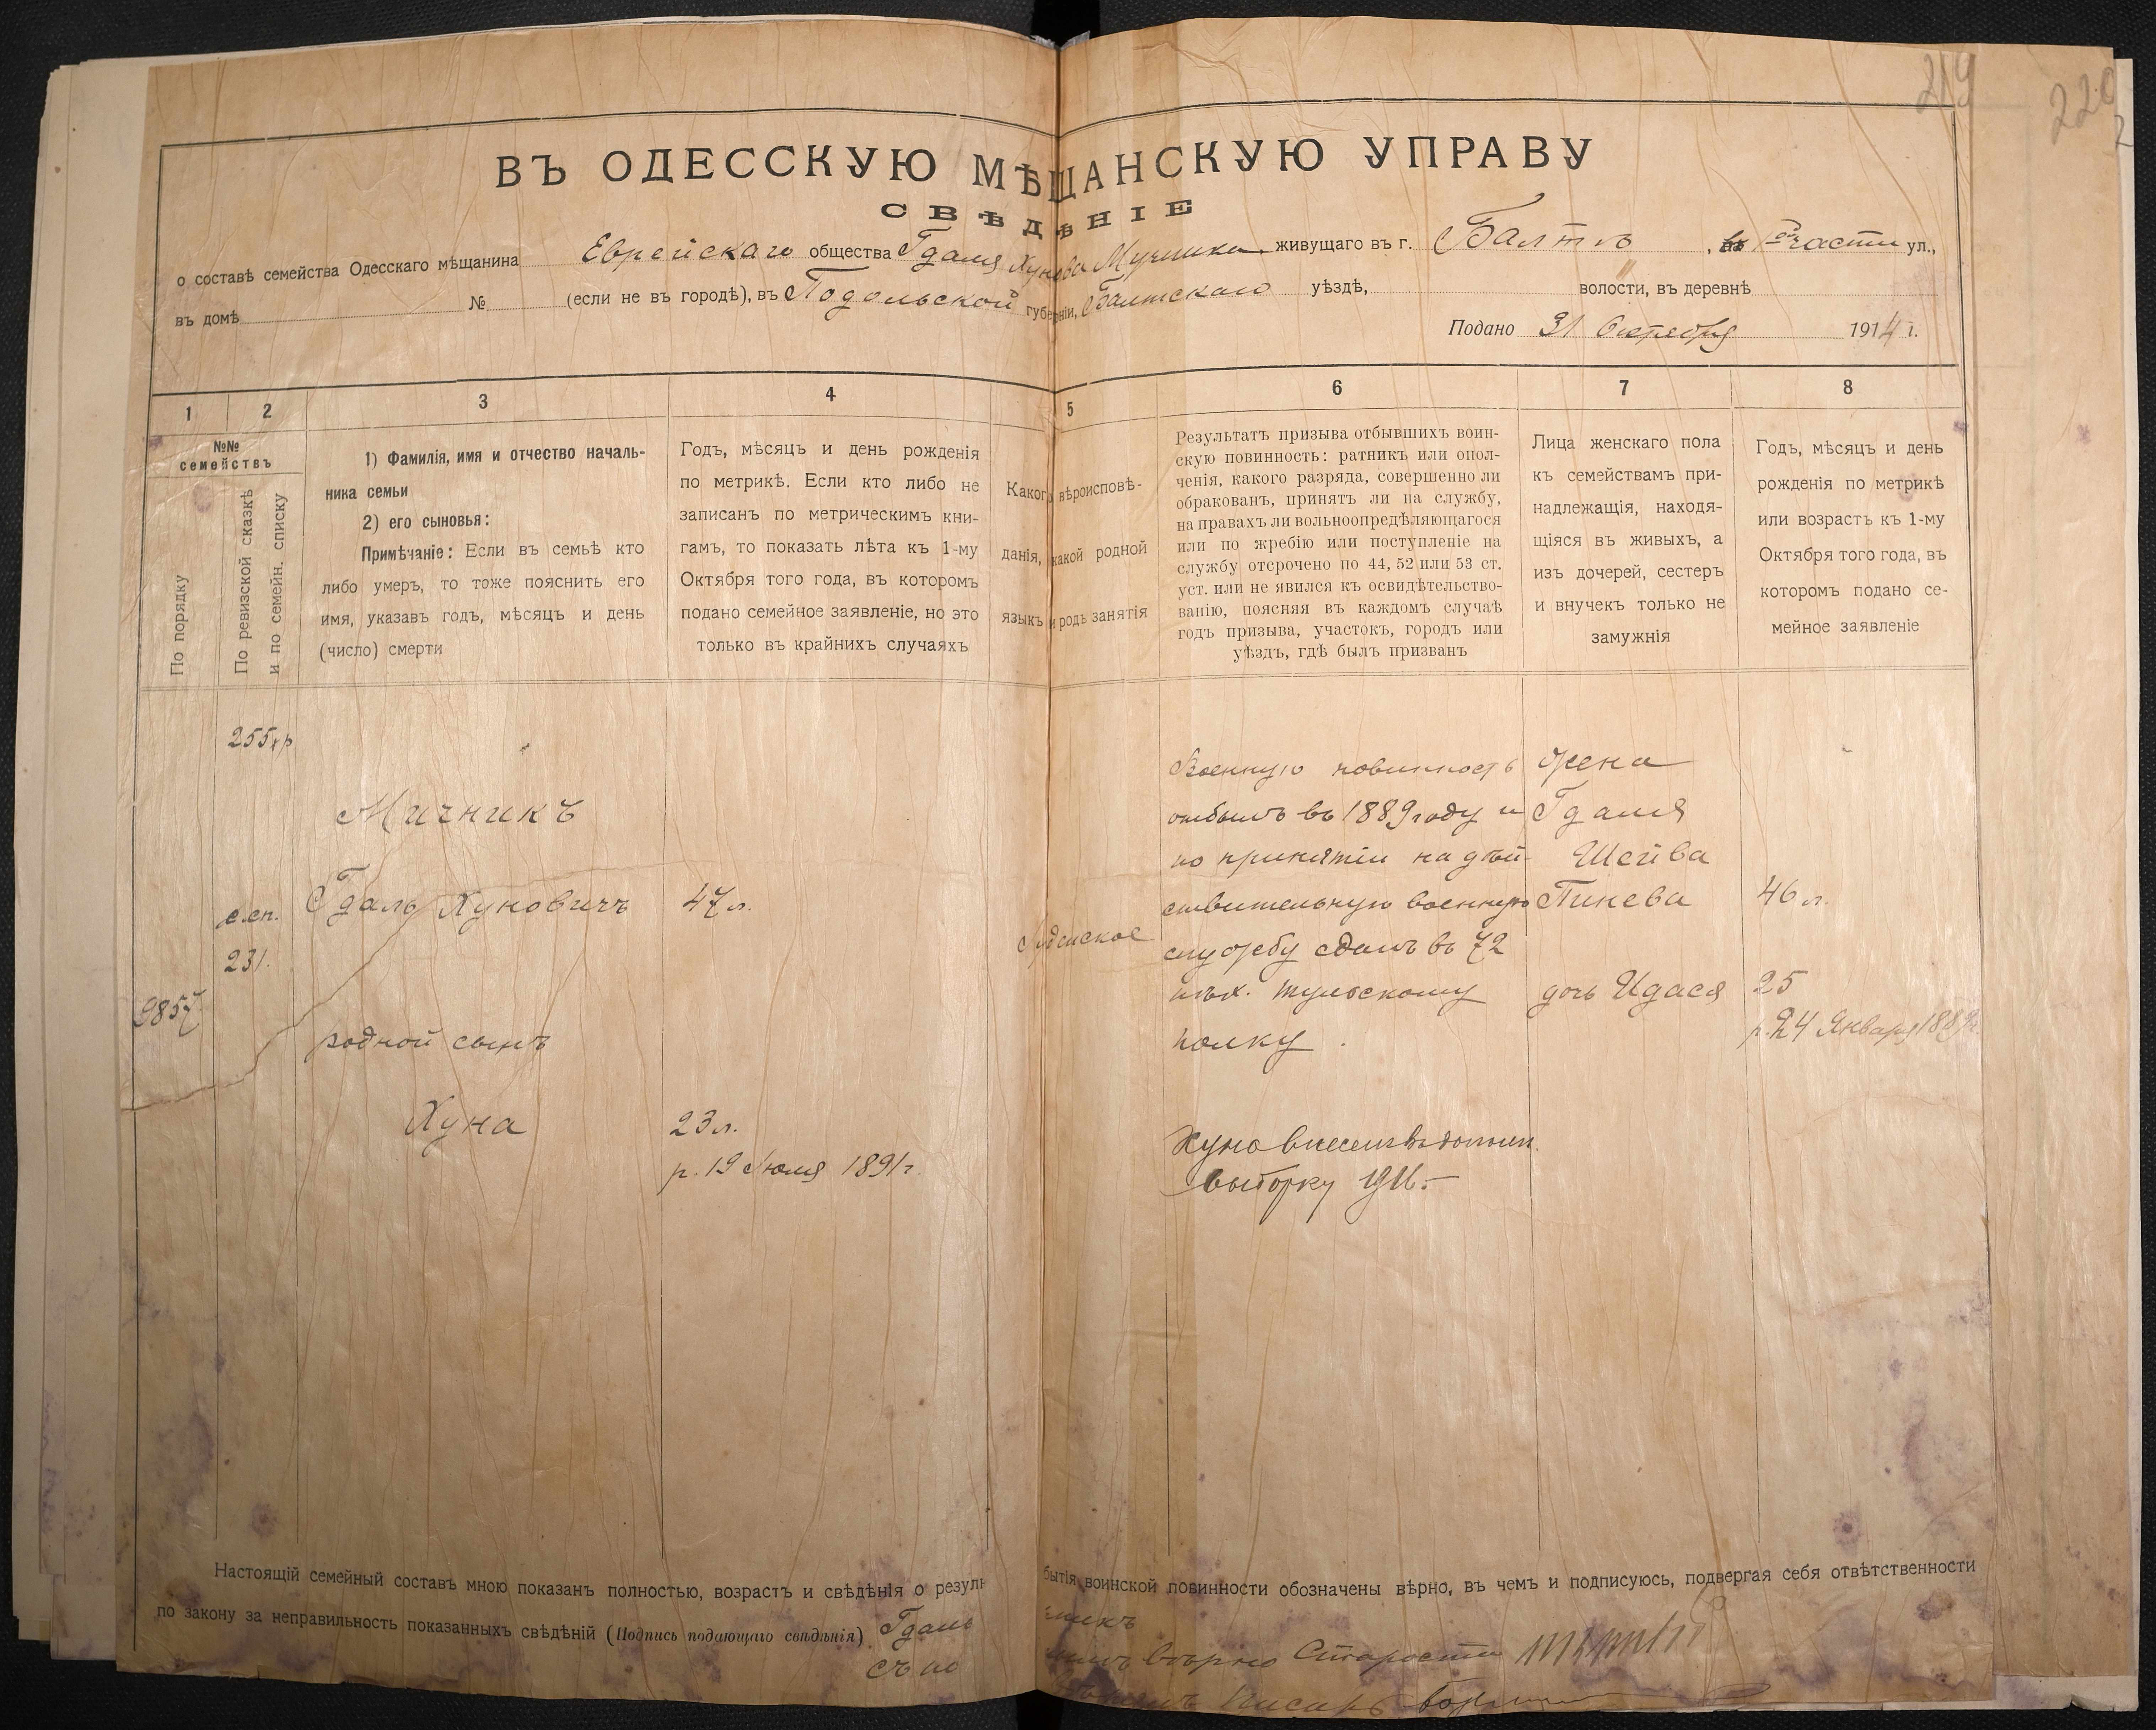 219
220
2
ВЪ ОДЕССКУЮ МѢЩАНСКУЮ УПРАВУ
СВѢДѢНІЕ
о составѣ семейства Одесскаго мѣщанина Еврейскаго общества Гдаля Хунова Мучника живущаго въ г. Балтѣ, части ул.,
въ домѣ № (если не въ городѣ), въ Подольской губерніи, Балтскаго уѣздѣ, волости, въ деревнѣ
Подано 31 Октября 1914 г.
1 2 3 4 5 6 7 8
№№
семействъ
По порядку
По ревизской сказкѣ
и по семейн. списку
1) Фамилія, имя и отчество началь-
ника семьи
2) его сыновья:
Примѣчаніе: Если въ семьѣ кто
либо умеръ, то тоже пояснить его
имя, указавъ годъ, мѣсяцъ и день
(число) смерти
Годъ, мѣсяцъ и день рожденія
по метрикѣ. Если кто либо не
записанъ по метрическимъ кни-
гамъ, то показать лѣта къ 1-му
Октября того года, въ которомъ
подано семейное заявленіе, но это
только въ крайнихъ случаяхъ
Какого вѣроисповѣ-
данія, какой родной
языкъ и родъ занятія
Результатъ призыва отбывшихъ воин-
скую повинность: ратникъ или опол-
ченія, какого разряда, совершенно ли
обракованъ, принятъ ли на службу,
на правахъ ли вольноопредѣляющагося
или по жребію или поступленіе на
службу отсрочено по 44, 52 или 53 ст.
уст. или не явился къ освидѣтельство-
ванію, поясняя въ каждомъ случаѣ
годъ призыва, участокъ, городъ или
уѣздъ, гдѣ былъ призванъ
Лица женскаго пола
къ семействамъ при-
надлежащія, находя-
щіяся въ живыхъ, а
изъ дочерей, сестеръ
и внучекъ только не
замужнія
Годъ, мѣсяцъ и день
рожденія по метрикѣ
или возрастъ къ 1-му
Октября того года, въ
которомъ подано се-
мейное заявленіе
9857
255
с.сп.
231.
Мичникъ
Гдаль Хуновичъ
47 л.
родной сынъ
Хуна
23 л.
р. 19 Іюля 1891 г.
Іудейское
Военную повинность
отбылъ въ 1889 году и
по принятіи на дѣй-
ствительную военную
службу сданъ въ 72
пѣх. тульскому
полку.
Хуна внесенъ въ дополн.
выборку 1911.
Жена
Гдаля
Шейва
Пинева
46 л.
дочь Идася
25
р. 24 Января 1889 г.
Настоящій семейный составъ мною показанъ полностью, возрастъ и свѣдѣнія о резуль бытія воинской повинности обозначены вѣрно, въ чемъ и подписуюсь, подвергая себя отвѣтственности
по закону за неправильность показанныхъ свѣдѣній (Подпись подающаго свѣдѣнія) Гдаль
вѣрно Староста
Писарь